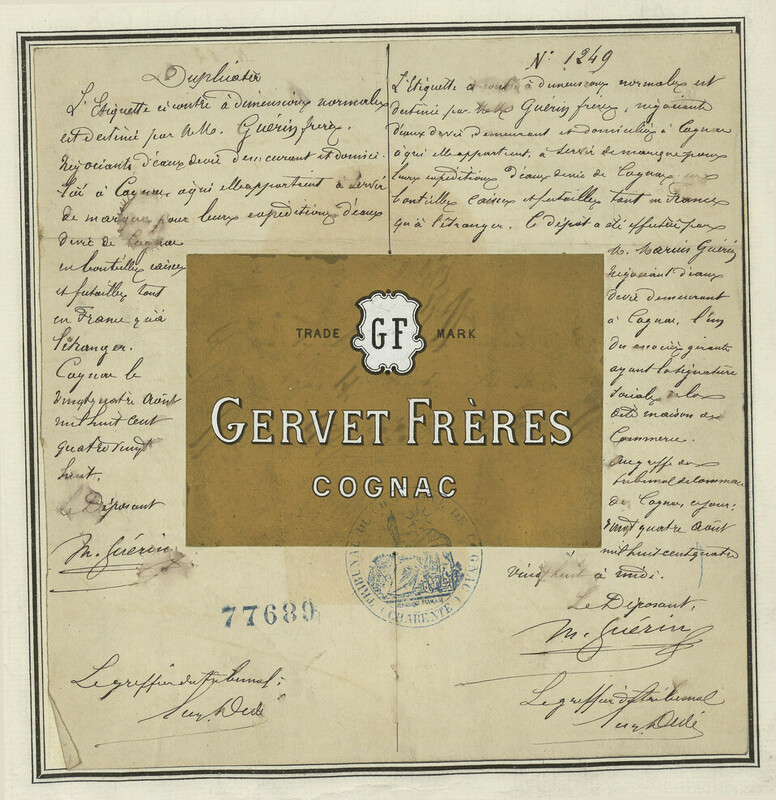 Duplicata
L'Etiquette ci contre à dimensions normales
est destiné par M.M. Guérin frères.
Négociants d'eaux de vie demeurant et domici-
liés à Cognac, à qui elle appartient à servir
de marque pour leurs expéditions d'eaux
de vie de Cognac
en bouteilles caisses
et futailles tant
en France qu'à
l'étranger.
Cognac le
vingt quatre Août
mil huit cent
quatre vingt
huit.
Le Déposant
M. Guérin
Le greffier du tribunal:
N° 1249
L'Etiquette à dimensions normales est
destiné par M.M. Guérin frères, négociants
d'eaux de vie demeurant et domiciliés à Cognac
à qui elle appartient, à servir de marque pour
leurs expéditions d'eaux de vie de Cognac en
bouteilles caisses et futailles tant en France
qu'à l'étranger. Ce dépôt a été effectué par
M. Guérin
Négociant d'eaux
de vie demeurant
à Cognac, l'un
des associés gérants
ayant la signature
sociale de la
dite maison de
Commerce.
Au greffe du
tribunal de Commerce
de Cognac, ce jour:
vingt quatre Août
mil huit cent quatre
vingt huit à midi.
Le Déposant,
M. Guérin
Le greffier du tribunal
TRADE GF MARK
GERVET FRÈRES
COGNAC
TRIBUNAL DE COGNAC (CHARENTE)
77689